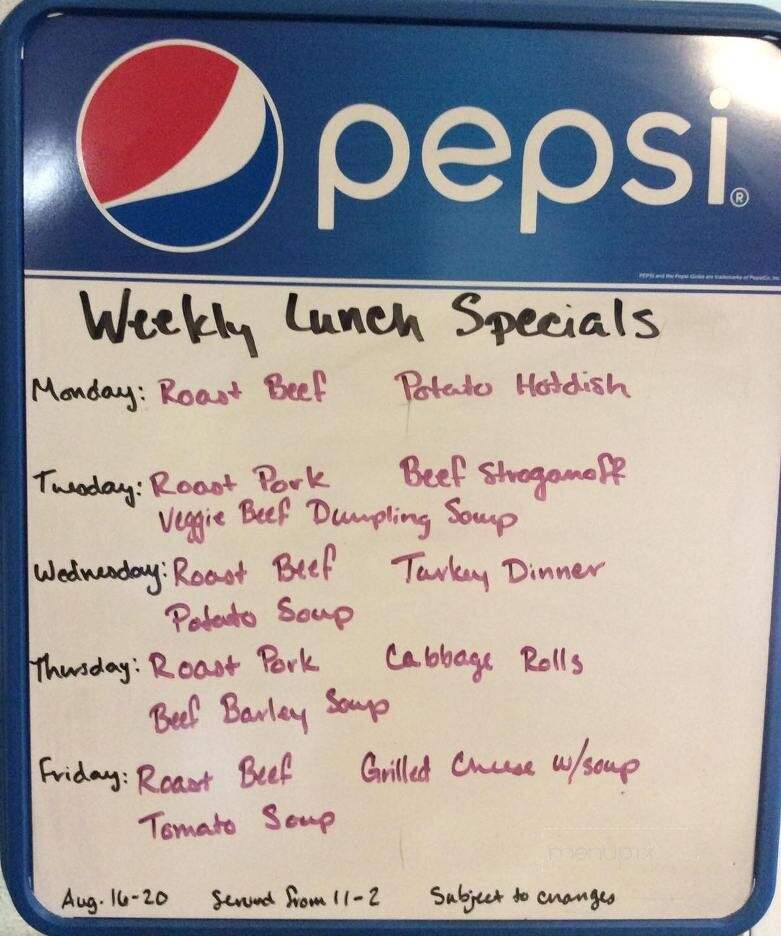 pepsi®
PEPSI and the Pepsi Globe are trademarks of PepsiCo, Inc.
Weekly Lunch Specials
Monday: Roast Beef Potato Hotdish
Tuesday: Roast Pork Beef Stroganoff
Veggie Beef Dumpling Soup
Wednesday: Roast Beef Turkey Dinner
Potato Soup
Thursday: Roast Pork Cabbage Rolls
Beef Barley Soup
Friday: Roast Beef Grilled Cheese w/soup
Tomato Soup
menupix
Aug. 16-20 Served from 11-2 Subject to changes